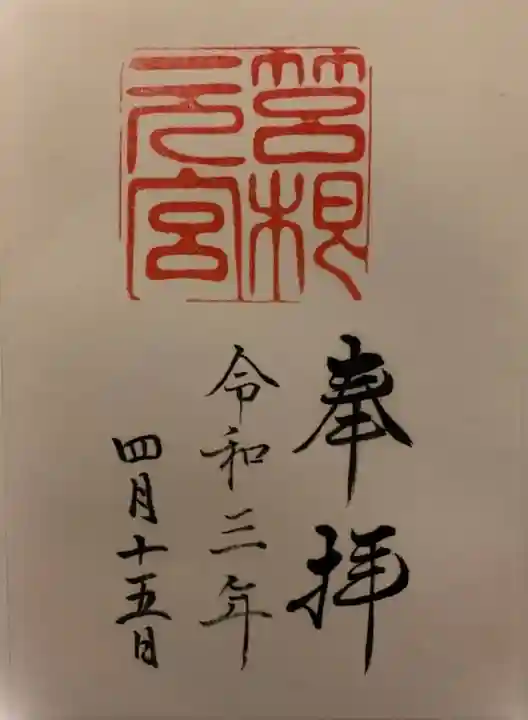 筥根
元宮
奉拝
令和三年
四月十五日